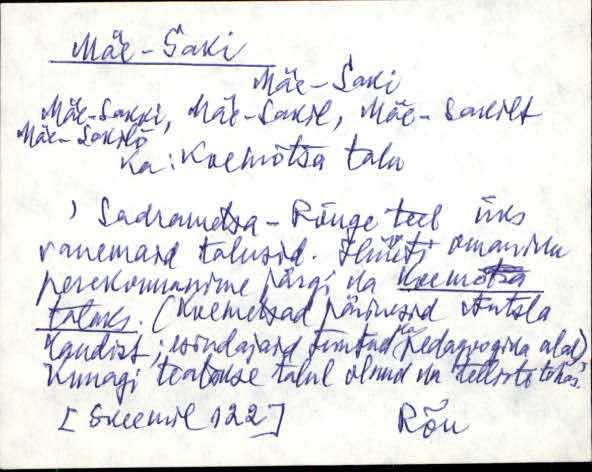 Mäe-Saki
Mäe-Saki
Mäe-Sakki, Mäe-Sakil, Mäe-Sakilt
Mäe-Sakilõ
ka: Koemõtsa talu
) Sadrametsa-Rõuge teel üks
vanemaid talusid. Hüüti omaniku
perekonnanime järgi ka Koemõtsa
taluks. (Koemetsad pärinesid Antsla
kandist; esindajaid tuntud ka pedagoogika alal)
Kunagi teatakse talul olnud ka tellistetehas.
[Skeemil 122] Rõu